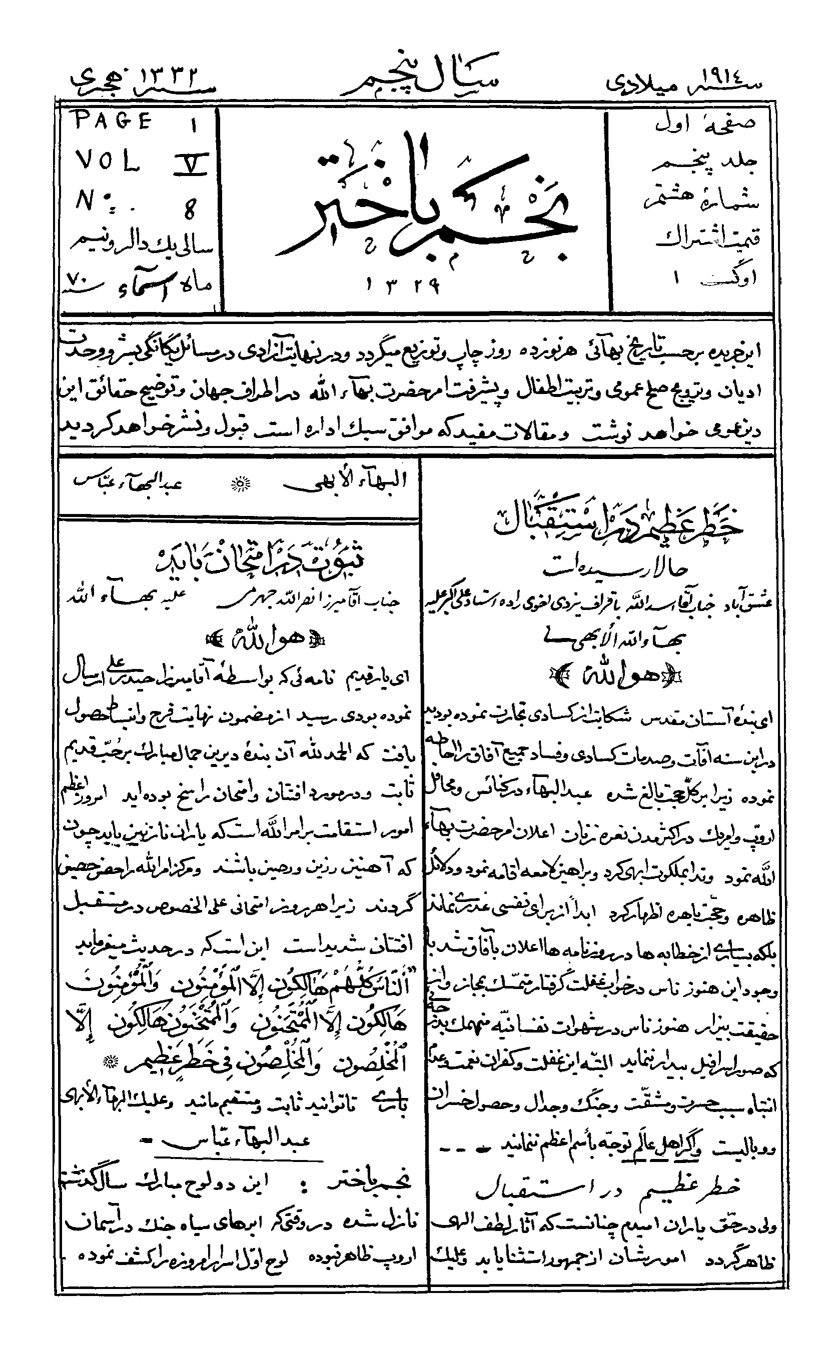 سنه ١٩١٤ ميلادى
سال پنجم
سنه ١٣٣٢ هجرى
صفحهٔ اول
جلد پنجم
شمارهٔ هشتم
قیمت اشتراك
اوگست ١
نجم باختر
١٣٢٩
PAGE ١
VOL V
Nº. 8
سالی یك دالر و نیم
ماه اسمآء سنه ٧٠
این جریده برحسب تاریخ بهائی هر نوزده روز چاپ و توزیع میگردد و در نهایت آزادی در مسائل یگانگی بشر و وحدت
ادیان و ترویج صلح عمومی و تربیت اطفال و پیشرفت امر حضرت بهآء الله در اطراف جهان و توضیح حقائق این
دین عمومی خواهد نوشت و مقالات مفید که موافق سبك اداره است قبول و نشر خواهد گردید
خطر عظیم در استقبال
حالا رسیده است
عشق آباد جناب آقا اسد الله باقراف یزدی اخوی زاده استاد علی اکبر علیه
بهآء الله الأبهی
هو الله
ای بندهٔ آستان مقدس شکایت از کسادی تجارت نموده بودید
در این سنه آفات و صدمات کسادی و فساد جمیع آفاق را احاطه
نموده زیرا بر کل حجت بالغ شده عبد البهآء در کنائس و محافل
اروپ و امریك در اکثر مدن نعره زنان اعلان امر حضرت بهآء
الله نمود و ندا بملکوت ابهی کرد و براهین لامعه اقامه نمود و دلائل
ظاهره و حجت باهره اظهار کرد ابداً از برای نفسی عذری نماند
بلکه بسیاری از خطابه ها در روزنامه ها اعلان بآفاق شد با
وجود این هنوز ناس در خواب غفلت گرفتار متمسك بمجاز و از
حقیقت بیزار هنوز ناس در شهوات نفسانیه منهمك بدرجهٔ
که صور اسرافیل بیدار ننماید البته این غفلت و کفران نعمت و عدم
انتباه سبب حسرت و مشقت و جنگ و جدال و حصول خسران
و وبالیست واگر اهل عالم توجه باسم اعظم ننمایند
خطر عظیم در استقبال
ولی در حق یاران امیدم چنانست که آثار لطف الهی
ظاهر گردد امورشان از جمهور استثنا یابد و علیك
البهآء الأبهی عبد البهآء عبّاس
ثبوت در امتحان باید
جناب آقا میرزا نصر الله جهرمی علیه بهآء الله
هو الله
ای یار قدیم نامه ئی که بواسطه آقا میرزا حیدر علی ارسال
نموده بودی رسید از مضمون نهایت فرح و انبساط حصول
یافت که الحمد لله آن بندهٔ دیرین جمال مبارك بر حُبّ قدیم
ثابت و در مورد افتتان و امتحان راسخ بوده اید امروز اعظم
امور استقامت بر امر الله است که یاران نازنین باید چون
که آهنین رزین و رصین باشند و مرکز امر الله را حصن حصین
گردند زیرا هر روز امتحانی علی الخصوص در مستقبل
افتتان شدید است این است که در حدیث میفرماید
"اَلنَّاسُ کُلُّهُمْ هَالِکُونَ إِلَّا الْمُؤْمِنُونَ وَالْمُؤْمِنُونَ
هَالِکُونَ إِلَّا الْمُمْتَحَنُونَ وَالْمُمْتَحَنُونَ هَالِکُونَ إِلَّا
الْمُخْلِصُونَ وَالْمُخْلِصُونَ فِی خَطَرٍ عَظِیمٍ
باری تا توانید ثابت و مستقیم مانید و علیك البهآء الأبهی
عبد البهآء عبّاس
نجم باختر : این دو لوح مبارك سال گذشته
نازل شده در وقتی که ابرهای سیاه جنك در آسمان
اروپ ظاهر نبوده لوح اوّل اسرار امروزه را کشف نموده .